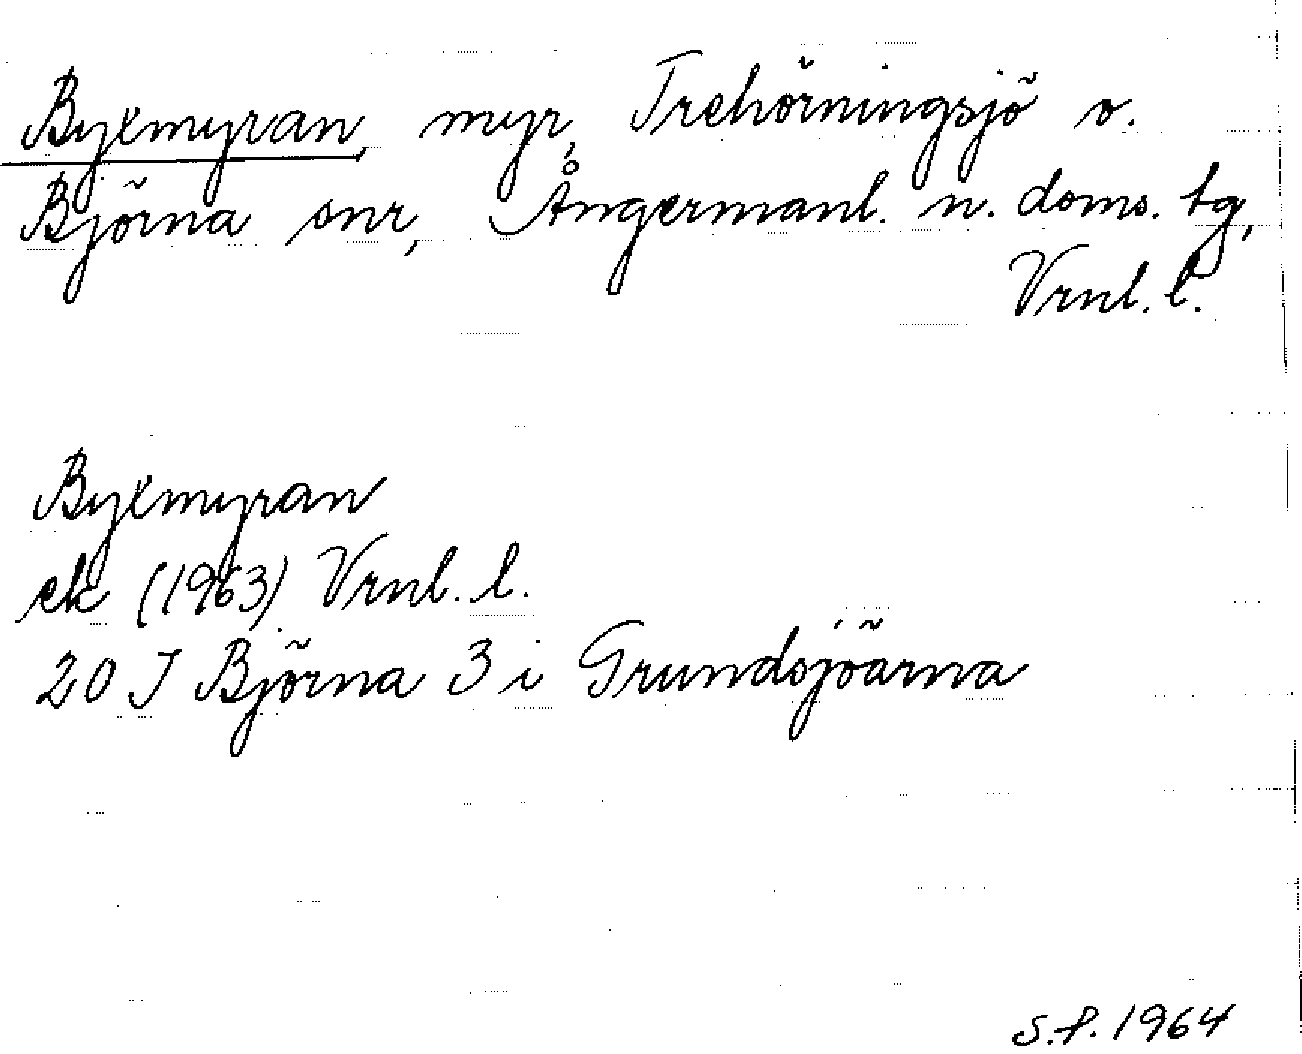 Byxmyran, myr, Trehörningsjö o.
Björna snr, Ångermanl. n. doms. tg,
Vrnl. l.
Byxmyran
ek (1963) Vrnl. l.
20 J Björna 3 i Grundsjöärna
S.P. 1964